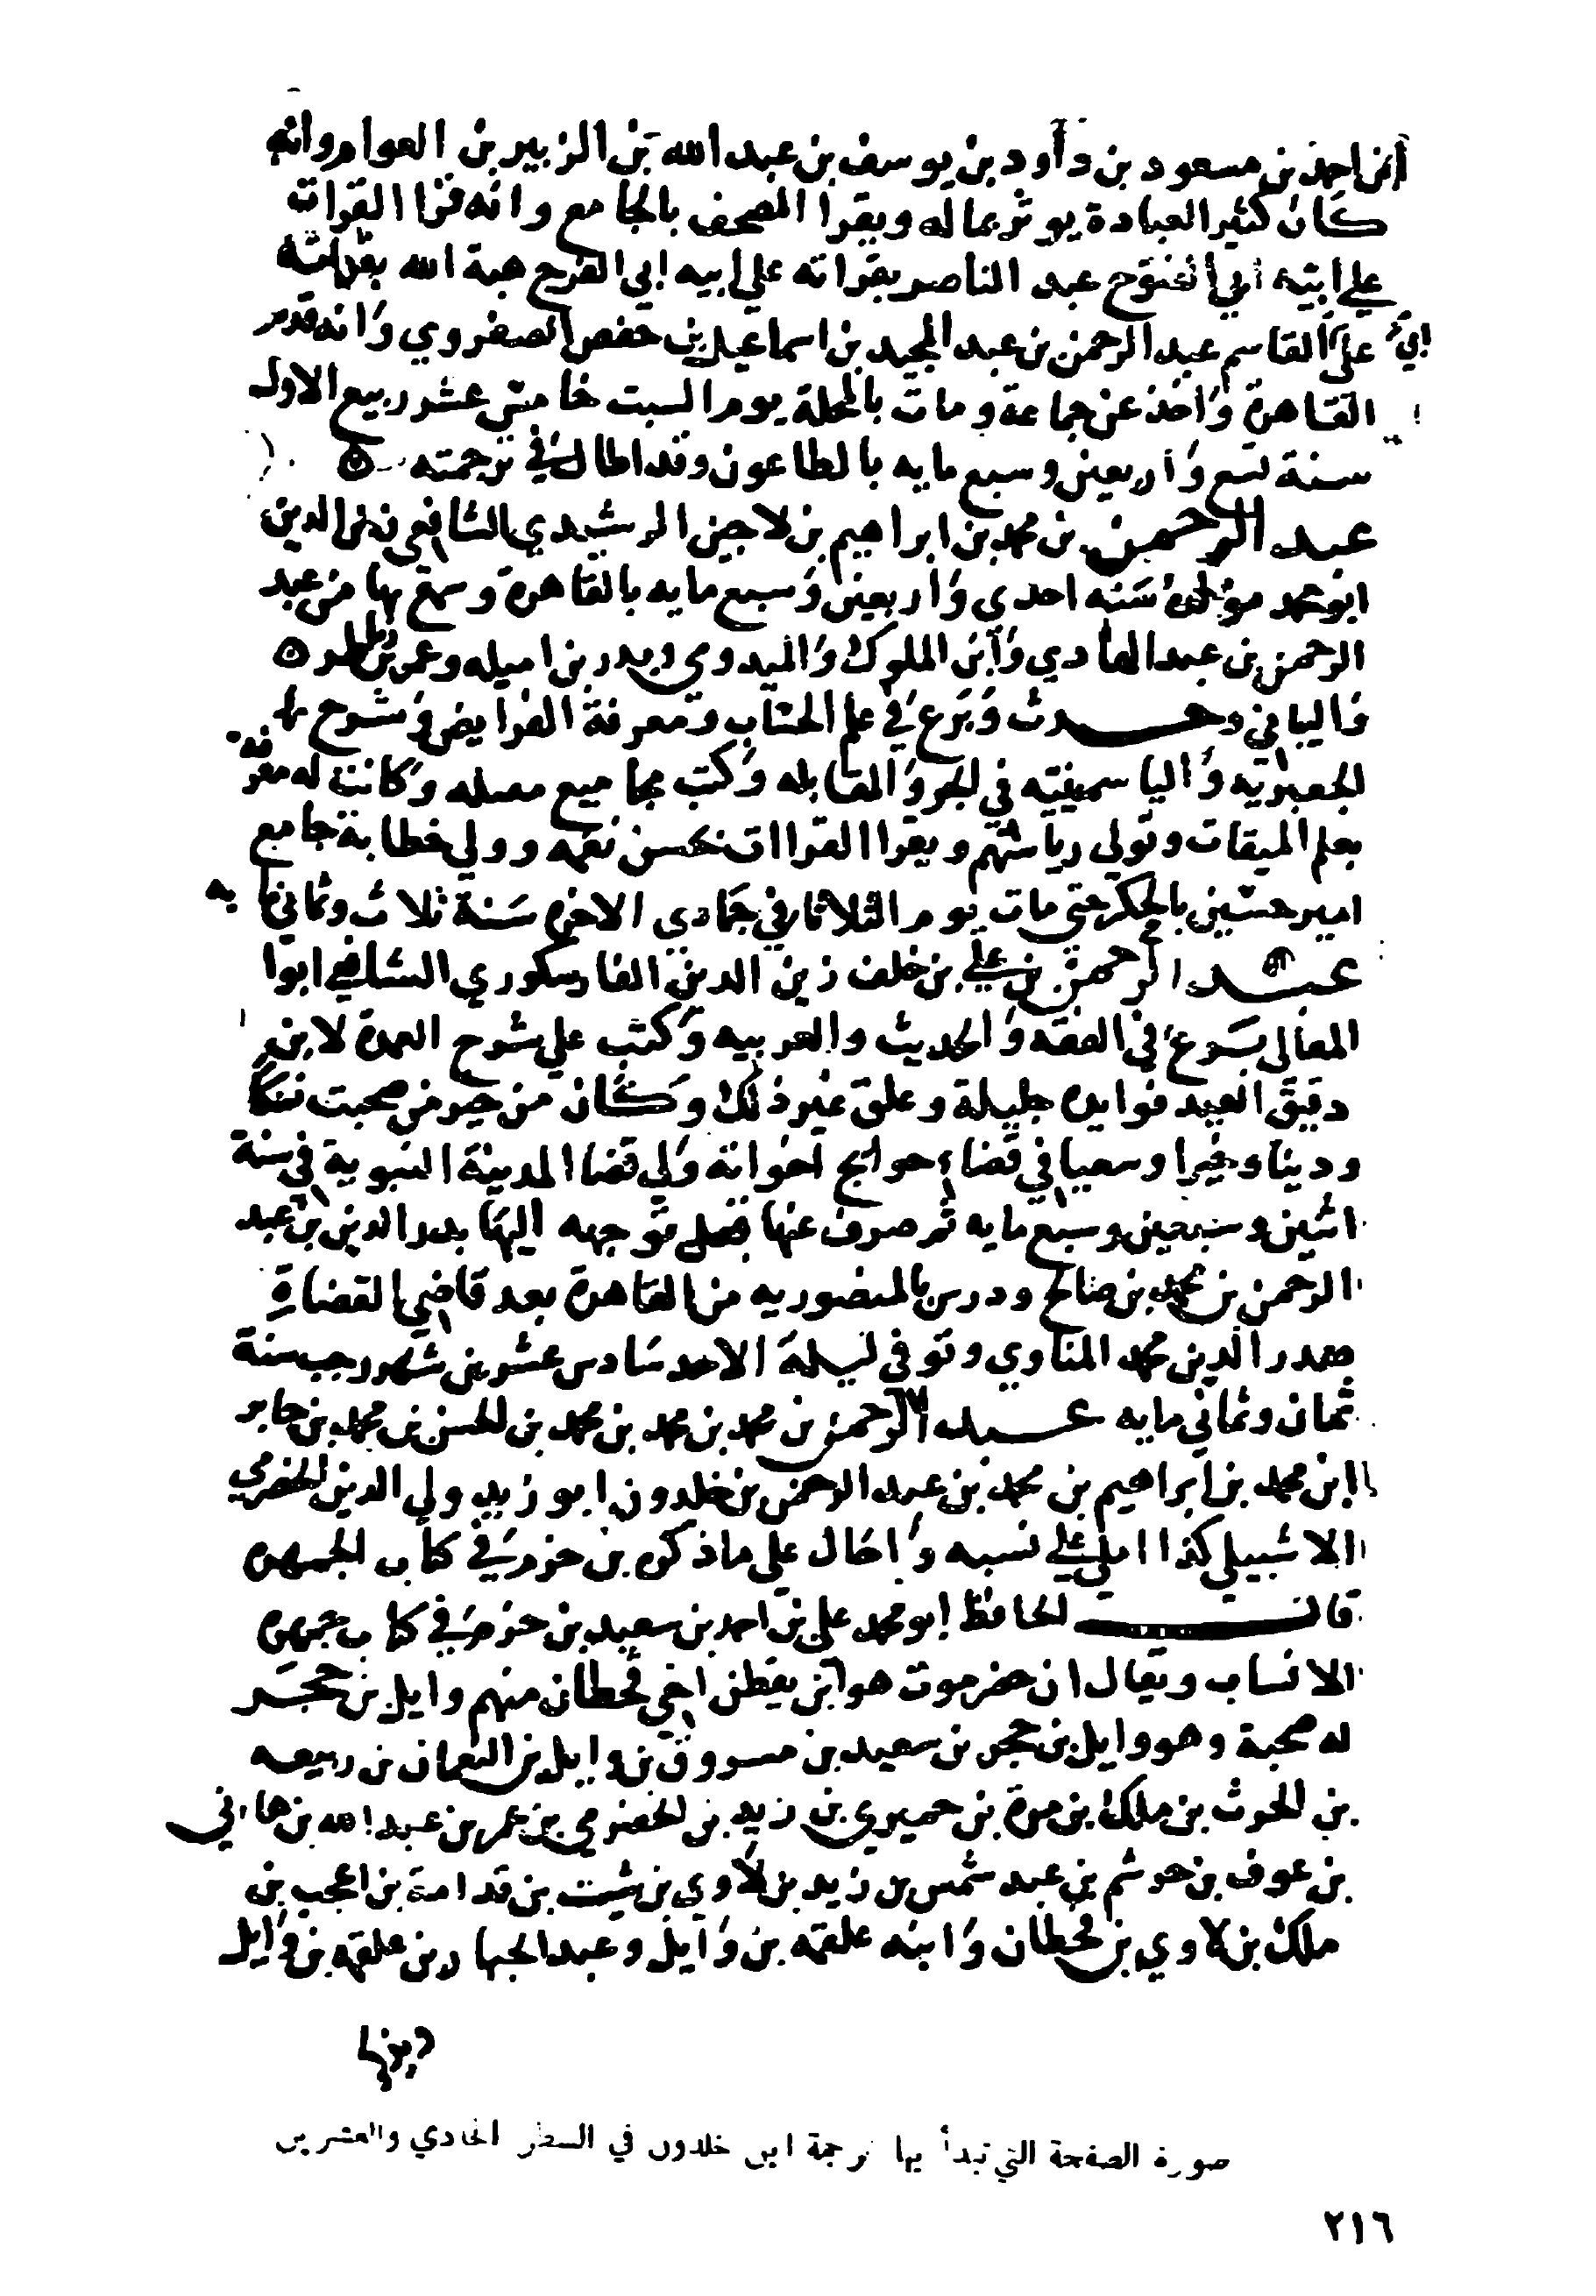 ابن احمد بن مسعود بن داود بن يوسف بن عبد الله بن الزبير بن العوام وانه
كان كثير العبادة يوثر بماله ويقرا المصحف بالجامع وانه قرا القرات
علي ابيه ابي الفتوح عبد الناصر بقراته علي ابيه ابي الفرج هبة الله بقراته
علي ابي القاسم عبد الرحمن بن عبد المجيد بن اسماعيل بن حفص الصفروي وانه قدم
القاهرة واخذ عن جماعة ومات بالمحلة يوم السبت خامس عشر ربيع الاول
سنة تسع واربعين وسبع مايه بالطاعون وقد اطال في ترجمته
عبد الرحمن بن محمد بن ابراهيم بن لاجين الرشيدي الشافعي زين الدين
ابو محمد مولده سنه احدي واربعين وسبع مايه بالقاهرة وسمع بها من عبد
الرحمن بن عبد الهادي وابن الملوك والميدومي وبدر بن اميله وعمر بن
واليافي وحدث وبرع في علم الحساب ومعرفة الفرايض وشرح
الجعبريه والياسمينيه في الجبر والمقابله وكتب مجاميع وكانت له معرفه
بعلم الميقات وتولي رياستهم ويقرا القراات بحسن نغمه وولي خطابة جامع
امير حسين بالحكر حتي مات يوم الثلاثا في جمادي الاخره سنة ثلاث وثماني مايه
عبد الرحمن بن علي بن خلف زين الدين الفارسكوري الشافعي ابوا
المعالي برع في الفقه والحديث والعربيه وكتب علي شرح العمدة لابن
دقيق العيد فوايده جليلة وعلق غير ذلك وكان من خير من صحبت نسكا
ودينا وخيرا وسعيا في قضاء حوايج اخوانه ولي قضا المدينة النبوية في سنة
اثنين وسبعين وسبع مايه ثم صرف عنها قبل توجهه اليها بدر الدين بن عبد
الرحمن بن محمد بن صالح ودرس بالمنصوريه من القاهرة بعد قاضي القضاة
صدر الدين محمد المناوي وتوفي ليلة الاحد سادس عشرين شهر رجب سنة
ثمان وثماني مايه عبد الرحمن بن محمد بن محمد بن محمد بن الحسن بن محمد بن جابر
ابن محمد بن ابراهيم بن محمد بن عبد الرحمن بن خلدون ابو زيد ولي الدين الحضرمي
الاشبيلي كذا املي علي نسبه واحال علي ما ذكره بن حزم في كتاب الجمهره
قال الحافظ ابو محمد علي بن احمد بن سعيد بن حزم في كتاب جمهره
الانساب ويقال ان حضرموت هو ابن يقطن اخي قحطان منهم وايل بن حجر
له صحبة وهو وايل بن حجر بن سعيد بن مسروق بن وايل بن النعمان بن ربيعه
بن الحرث بن ملك بن مرة بن حميري بن زيد بن الحضرمي بن عمر بن عبد الله بن هاني
بن عوف بن حرشم بن عبد شمس بن زيد بن لاوي بن شبت بن قدامة بن اعجب بن
ملك بن لاوي بن قحطان وابنه علقمه بن وايل وعبد الجبار بن علقمه بن وايل
صورة الصفحة التي تبدأ بها ترجمة ابن خلدون في السطر الحادي والعشرين
٢١٦